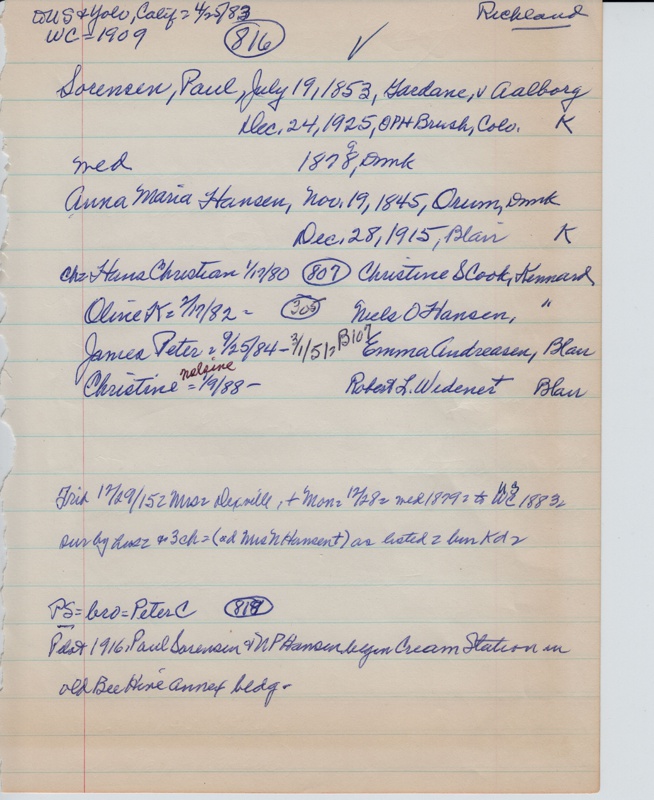 DUS & Yolo, Calif = 4/25/83 Richland
WC = 1909 816 ✓
Sorensen, Paul, July 19, 1853, Gardane, v Aalborg
Dec. 24, 1925, OPH Brush, Colo. K
med 1878, Dmk
9
Anna Maria Hansen, Nov. 19, 1845, Orum, Dmk
Dec. 28, 1915, Blair K
ch = Hans Christian 1/17/80 807 Christine S Cook, Kennard
Oline K = 2/17/82 = 305 Niels O Hansen, "
James Peter = 9/25/84 - 3/1/51 = B107 Emma Andreasen, Blair
nelsine
Christine = 1/9/88 - Robert L. Widener Blair
12/29/15 = Mrs = , + Mon = 12/28 = med 1879 = to WC 1883
sur by & 3 ch = ( Mrs N Hansen ) as listed = bur Kd
PS = bro = Peter C 818
1916, Paul Sorensen & NP Hansen begin Cream Station in
old Bee Hive annex bldg.